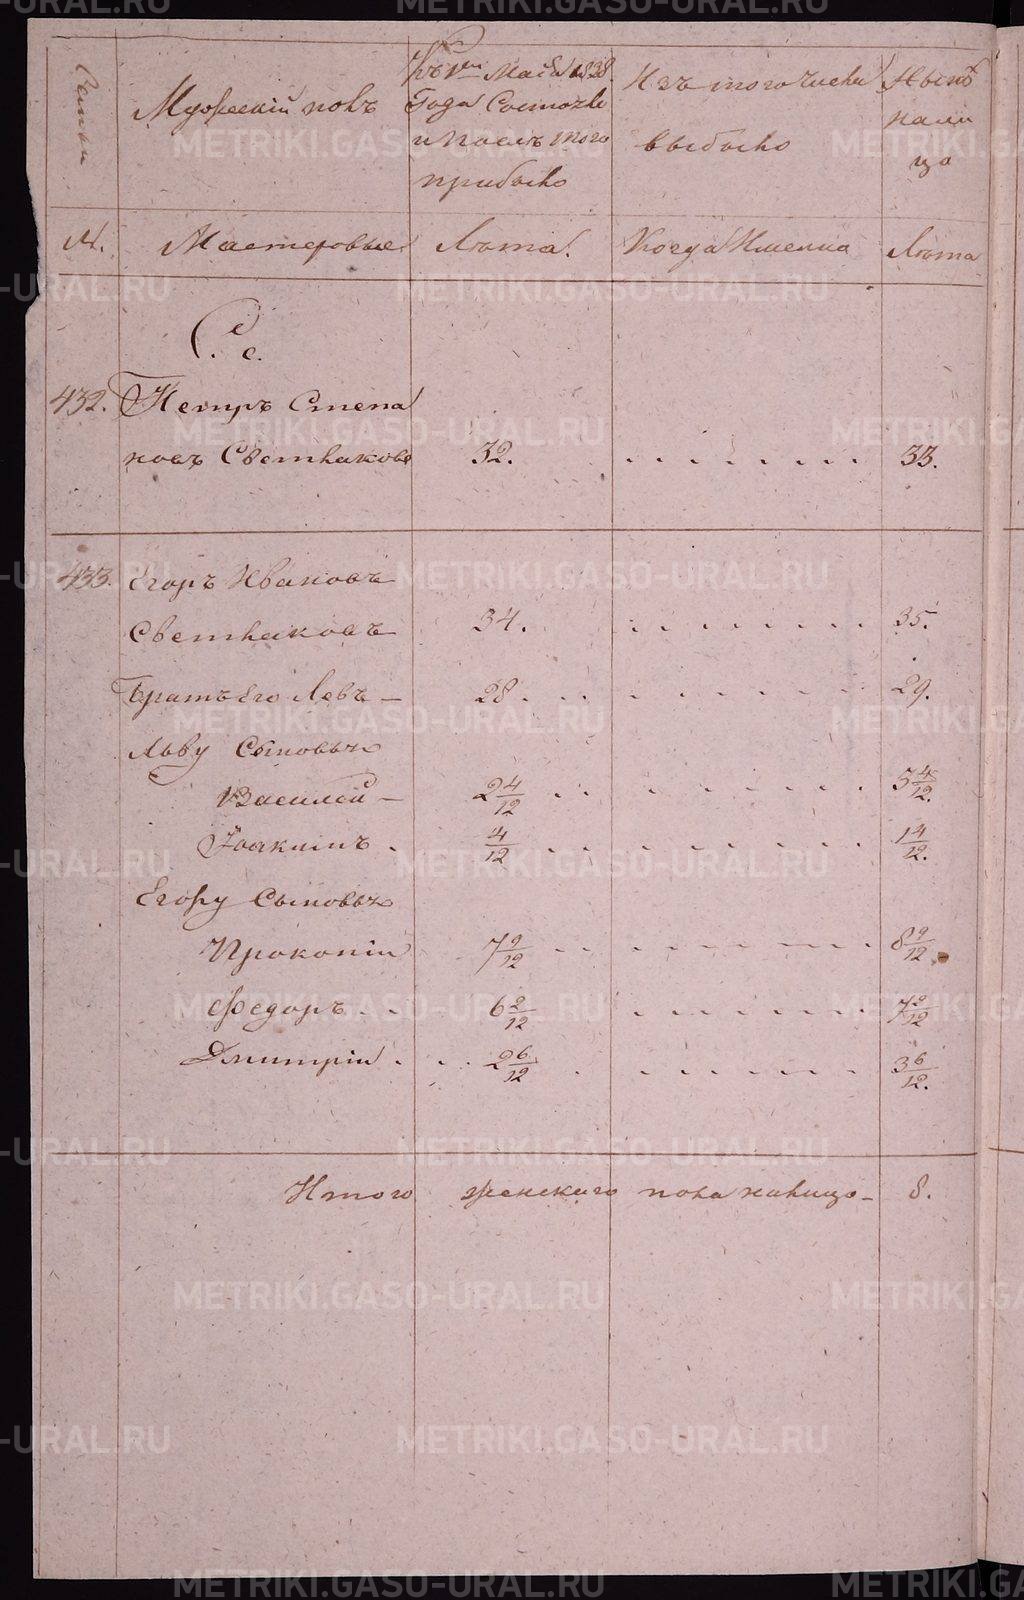 Семьи
Мужескій полъ
Къ 1му Маія 1838
Года Состояло
и послѣ того
прибыло
Изъ того числа
выбыло
Нынѣ
нали
цо
№.
Мастеровые
Лѣта.
Когда Имянно
Лѣта
С. с.
432. Петръ Степа
новъ Светлаковъ 32. 33.
433. Егоръ Ивановъ
Светлаковъ 34. 35.
Братъ Его Левъ — 28. 29.
Льву Сыновья
Василей — 2 4/12 3 4/12.
Іоакимъ. 4/12 1 4/12.
Егору Сыновья
Прокопій 7 9/12 8 9/12
Федоръ 6 2/12 7 2/12
Дмитрій 2 6/12 3 6/12.
Итого женскаго пола налицо — 8.
METRIKI.GASO-URAL.RU